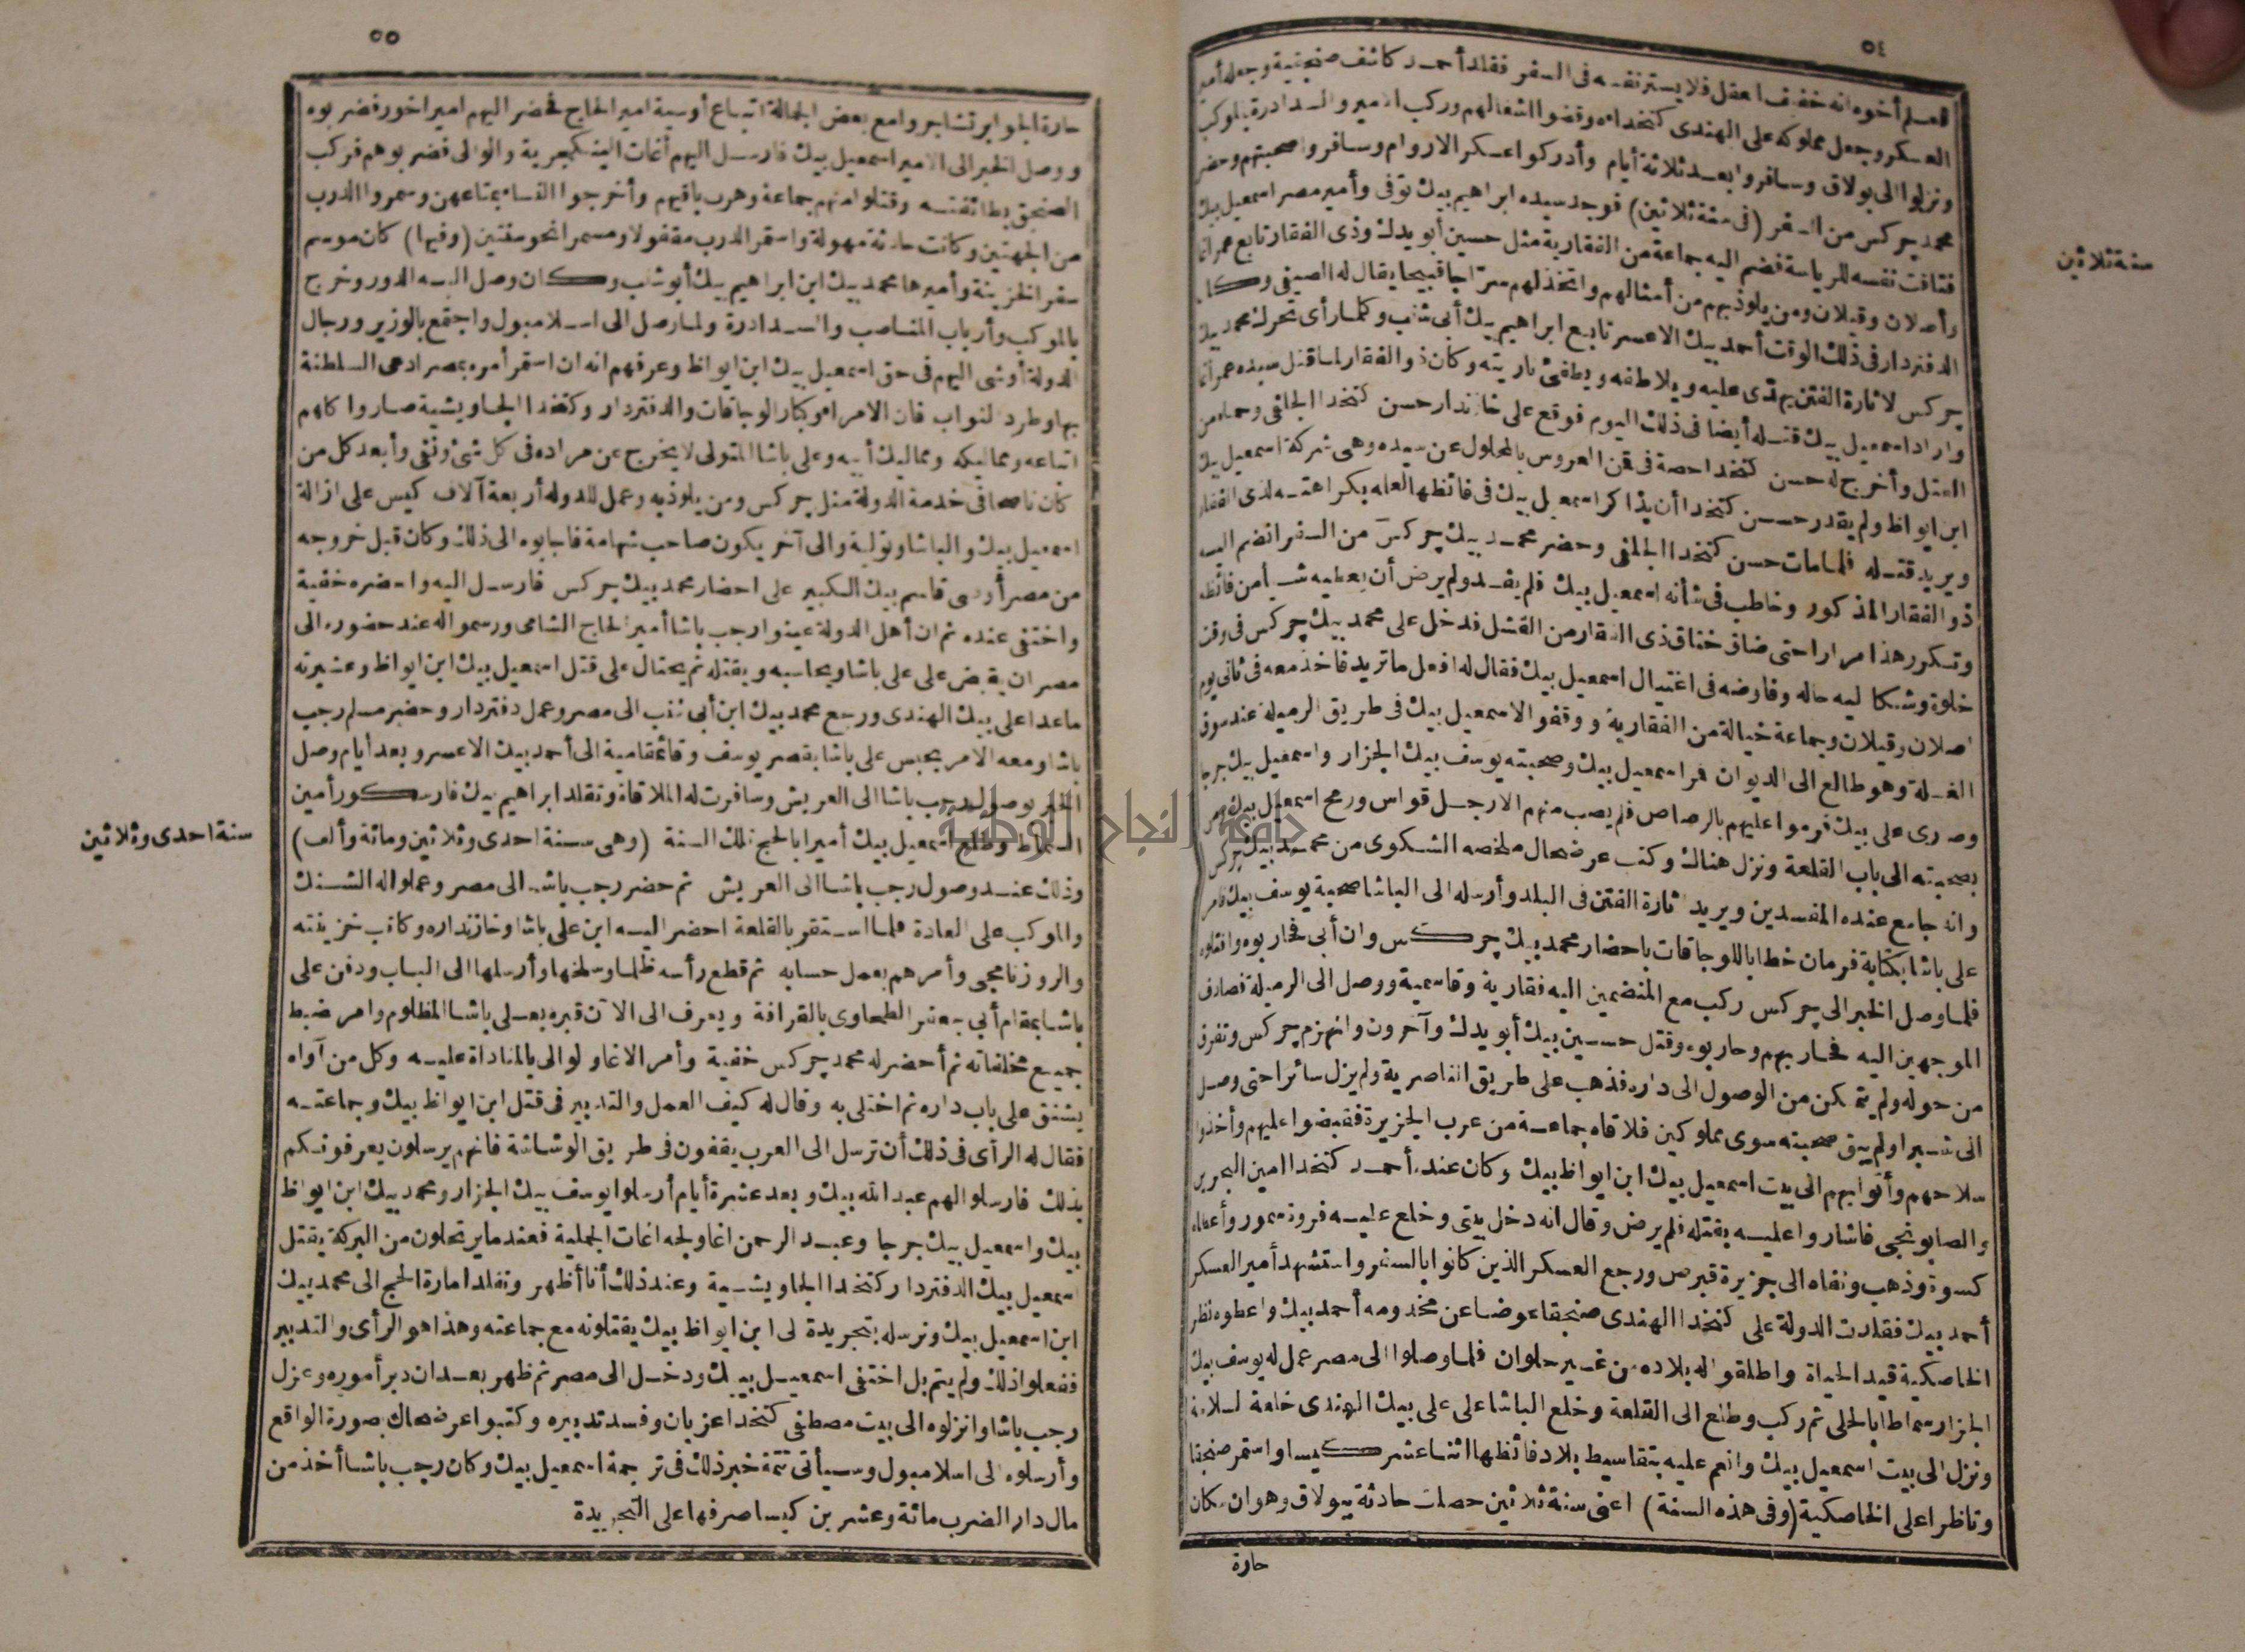 ٥٤
فعلم أخوه انه خفيف العقل فلا يستر نفسه فى السفر فقلد أحمد كاشف صنجقية وجعله أمير
العسكر وجعل مملوكه على الهندى كتخداه وقضوا اشغالهم وركب الامير والسدادرة بالموكب
ونزلوا الى بولاق وسافروا بعد ثلاثة أيام وأدركوا عسكر الاروام وسافروا صحبتهم وحضر
محمد چركس من السفر (فى سنة ثلاثين) فوجد سيده ابراهيم بيك توفى وأمير مصر اسمعيل بيك
سنة ثلاثين
فتاقت نفسه للرياسة فضم اليه جماعة من الفقارية مثل حسين أبو يدك وذى الفقار تابع عمر اغا
وأصلان وقيلان ومن يلوذ بهم من أمثالهم واتخذ لهم سراجا قبيحا يقال له الصيفى وكان
الدفتردار فى ذلك الوقت أحمد بيك الاعسر تابع ابراهيم بيك أبى شنب وكلما رأى تحرك محمد بيك
چركس لاثارة الفتن يهدى عليه ويلاطفه ويطفئ ناريته وكان ذو الفقار لما قتل سيده عمر اغا
واراد اسمعيل بيك قتله أيضا فى ذلك اليوم فوقع على خازندار حسن كتخدا الجلفى وحماه من
القتل وأخرج له حسن كتخدا حصة فى قمن العروس بالمحلول عن سيده وهى شركة اسمعيل بيك
ابن ايواظ ولم يقدر حسن كتخدا أن يذاكر اسمعيل بيك فى فائظها لعلمه بكراهته لذى الفقار
ويريد قتله فلما مات حسن كتخدا الجلفى وحضر محمد بيك چركس من السفر انضم اليه
ذو الفقار المذكور وخاطب فى شأنه اسمعيل بيك فلم يفد ولم يرض أن يعطيه شيأ من فائظه
وتكرر هذا مرارا حتى ضاق خناق ذى الفقار من القشل فدخل على محمد بيك چركس فى وقت
خلوة وشكا اليه حاله وفاوضه فى اغتيال اسمعيل بيك فقال له افعل ما تريد فاخذ معه فى ثانى يوم
اصلان وقيلان وجماعة خيالة من الفقارية ووقفوا لاسمعيل بيك فى طريق الرميلة عند سوق
الغلة وهو طالع الى الديوان فمر اسمعيل بيك وصحبته يوسف بيك الجزار واسمعيل بيك جرجا
وصارى على بيك فرموا عليهم بالرصاص فلم يصب منهم الا رجل قواس ورمح اسمعيل بيك ومن
بصحبته الى باب القلعة ونزل هناك وكتب عرضحال ملخصه الشكوى من محمد بيك چركس
وانه جامع عنده المفسدين ويريد اثارة الفتن فى البلد وأرسله الى الباشا صحبة يوسف بيك فامر
على باشا بكتابة فرمان خطابا للوجاقات باحضار محمد بيك چركس وان أبى فحاربوه واقتلوه
فلما وصل الخبر الى چركس ركب مع المنضمين اليه فقارية وقاسمية ووصل الى الرميلة فصادف
الموجهين اليه فحاربهم وحاربوه وقتل حسين بيك أبو يدك وآخرون وانهزم چركس وتفرق
من حوله ولم يتمكن من الوصول الى داره فذهب على طريق الناصرية ولم يزل سائرا حتى وصل
الى شبرا ولم يبق صحبته سوى مملوكين فلاقاه جماعة من عرب الجزيرة فقبضوا عليهم وأخذوا
سلاحهم وأتوا بهم الى بيت اسمعيل بيك ابن ايواظ بيك وكان عنده أحمد كتخدا امين البحرين
والصابونجى فاشاروا عليه بقتله فلم يرض وقال انه دخل بيتى وخلع عليه فروة سمور وأعطاه
كسوة وذهب ونفاه الى جزيرة قبرص ورجع العسكر الذين كانوا بالسفر واستشهد أمير العسكر
أحمد بيك فقلدت الدولة على كتخدا الهندى صنجقا عوضا عن مخدومه أحمد بيك واعطوه نظر
الخاصكية قيد الحياة واطلقوا له بلاده من غير حلوان فلما وصلوا الى مصر عمل له يوسف بيك
الجزار سماطا بالحلى ثم ركب وطلع الى القلعة وخلع الباشا على على بيك الهندى خلعة السلامة
ونزل الى بيت اسمعيل بيك وانعم عليه بتقاسيط بلاد فائظها اثنا عشر كيسا واستمر صنجقا
وناظرا على الخاصكية (وفى هذه السنة) اعنى سنة ثلاثين حصلت حادثة ببولاق وهو ان سكان
حارة
٥٥
حارة الجوابر تشاجروا مع بعض الجمالة اتباع أوسية امير الحاج فحضر اليهم امير اخور فضربوه
ووصل الخبر الى الامير اسمعيل بيك فارسل اليهم أغات الينكجرية والوالى فضربوهم فركب
الصنجق بطائفته وقتلوا منهم جماعة وهرب باقيهم وأخرجوا النساء بمتاعهن وسمروا الدرب
من الجهتين وكانت حادثة مهولة واستمر الدرب مقفولا ومسمرا نحو سنتين (وفيها) كان موسم
سفر الخزينة وأميرها محمد بيك ابن ابراهيم بيك أبو شنب وكان وصل اليه الدور وخرج
بالموكب وأرباب المناصب والسدادرة ولما وصل الى اسلامبول واجتمع بالوزير ورجال
الدولة أوشى اليهم فى حق اسمعيل بيك ابن ايواظ وعرفهم انه ان استمر أمره بمصر ادعى السلطنة
بها وطرد النواب فان الامراء وكبار الوجاقات والدفتردار وكتخدا الجاويشية صاروا كلهم
اتباعه ومماليكه ومماليك أبيه وعلى باشا المتولى لا يخرج عن مراده فى كل شئ ونفى وأبعد كل من
كان ناصحا فى خدمة الدولة مثل چركس ومن يلوذ به وعمل للدولة أربعة آلاف كيس على ازالة
اسمعيل بيك والباشا وتولية والى آخر يكون صاحب شهامة فاجابوه الى ذلك وكان قبل خروجه
من مصر أوصى قاسم بيك الكبير على احضار محمد بيك چركس فارسل اليه واحضره خفية
واختفى عنده ثم ان أهل الدولة عينوا رجب باشا أمير الحاج الشامى ورسموا له عند حضوره الى
مصر ان يقبض على على باشا ويحاسبه ويقتله ثم يحتال على قتل اسمعيل بيك ابن ايواظ وعشيرته
ماعدا على بيك الهندى ورجع محمد بيك ابن أبى شنب الى مصر وعمل دفتردار وحضر مسلم رجب
باشا ومعه الامر بحبس على باشا بقصر يوسف وقائمقامية الى أحمد بيك الاعسر وبعد أيام وصل
الخبر بوصول رجب باشا الى العريش وسافرت له الملاقاة وتقلد ابراهيم بيك فارسكور أمين
السماط وطلع اسمعيل بيك أميرا بالحج تلك السنة (وهى سنة احدى وثلاثين ومائة وألف)
سنة احدى وثلاثين
وذلك عند وصول رجب باشا الى العريش ثم حضر رجب باشا الى مصر وعملوا له الشنك
والموكب على العادة فلما استقر بالقلعة احضر اليه ابن على باشا وخازنداره وكاتب خزينته
والروزنامجى وأمرهم بعمل حسابه ثم قطع رأسه ظلما وسلخها وأرسلها الى الباب ودفن على
باشا بمقام أبى جعفر الطحاوى بالقرافة ويعرف الى الآن قبره بعلى باشا المظلوم وامر ضبط
جميع مخلفاته ثم أحضر له محمد چركس خفية وأمر الاغا والوالى بالمناداة عليه وكل من آواه
يشنق على باب داره ثم اختلى به وقال له كيف العمل والتدبير فى قتل ابن ايواظ بيك وجماعته
فقال له الرأى فى ذلك أن ترسل الى العرب يقفون فى طريق الوشاشة فانهم يرسلون يعرفونكم
بذلك فارسلوا لهم عبد الله بيك وبعد عشرة أيام أرسلوا يوسف بيك الجزار ومحمد بيك ابن ايواظ
بيك واسمعيل بيك جرجا وعبد الرحمن اغا ولجه اغات الجملية فعند ما يرتحلون من البركة يقتل
اسمعيل بيك الدفتردار كتخدا الجاويشية وعند ذلك أنا أظهر ونقلد امارة الحج الى محمد بيك
ابن اسمعيل بيك ونرسله بتجريدة الى ابن ايواظ بيك يقتلونه مع جماعته وهذا هو الرأى والتدبير
ففعلوا ذلك ولم يتم بل اختفى اسمعيل بيك ودخل الى مصر ثم ظهر بعد ان دبر أموره وعزل
رجب باشا وانزلوه الى بيت مصطفى كتخدا عزبان وفسد تدبيره وكتبوا عرضحال بصورة الواقع
وأرسلوه الى اسلامبول وسيأتى تتمة خبر ذلك فى ترجمة اسمعيل بيك وكان رجب باشا أخذ من
مال دار الضرب مائة وعشرين كيسا صرفها على التجريدة
جامعة النجاح الوطنية